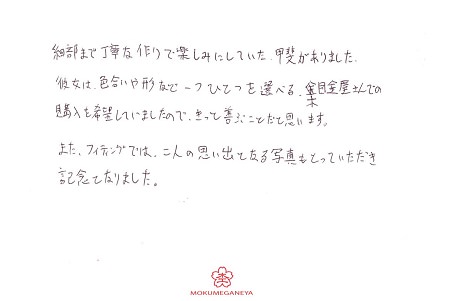 細部まで丁寧な作りで楽しみにしていた、甲斐がありました。
彼女は、色合いや形など一つひとつを選べる、杢目金屋さんでの
購入を希望していましたので、きっと喜ぶことだと思います。
また、フィッティングでは、二人の思い出となる写真もとっていただき
記念となりました。
MOKUMEGANEYA